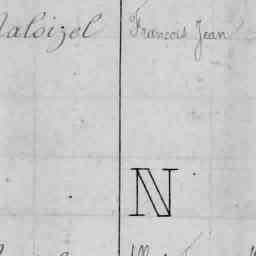 aloizel François Jean
N